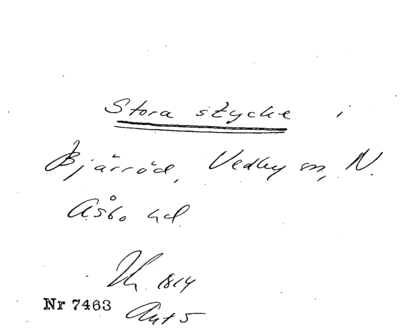 Stora stycke i
Bjärröd, Vedby sn, N.
Åsbo hd.
1814
Nr 7463
Ant 5